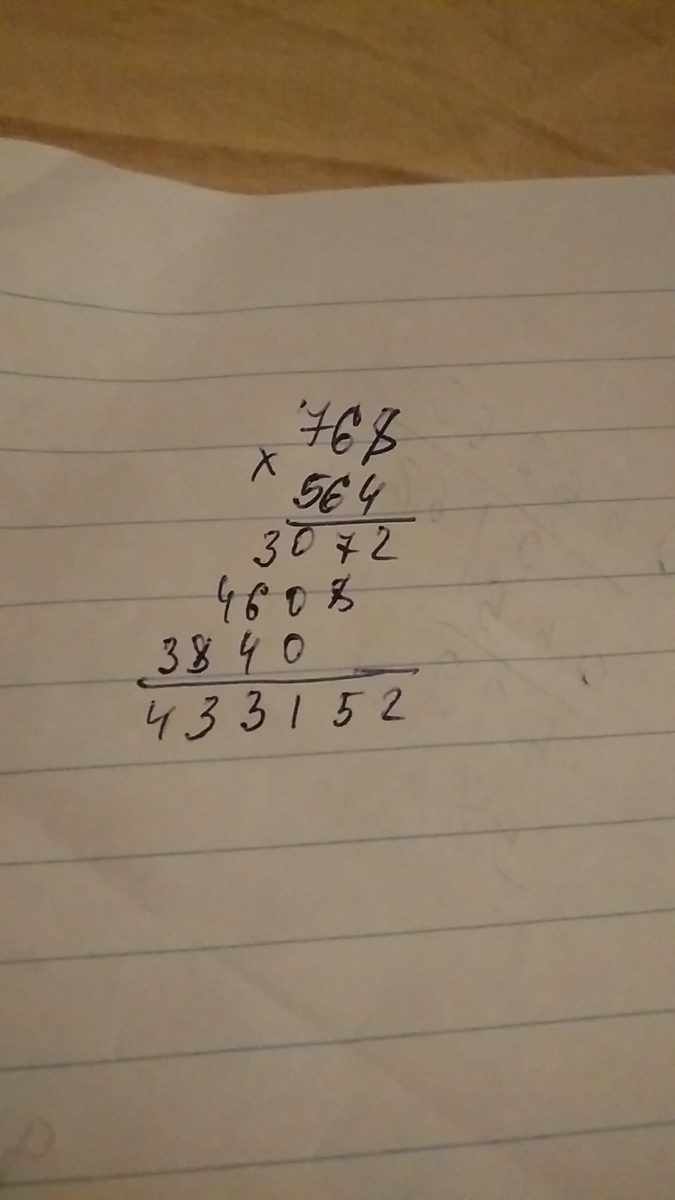 768
×
564
3072
4608
3840
433152